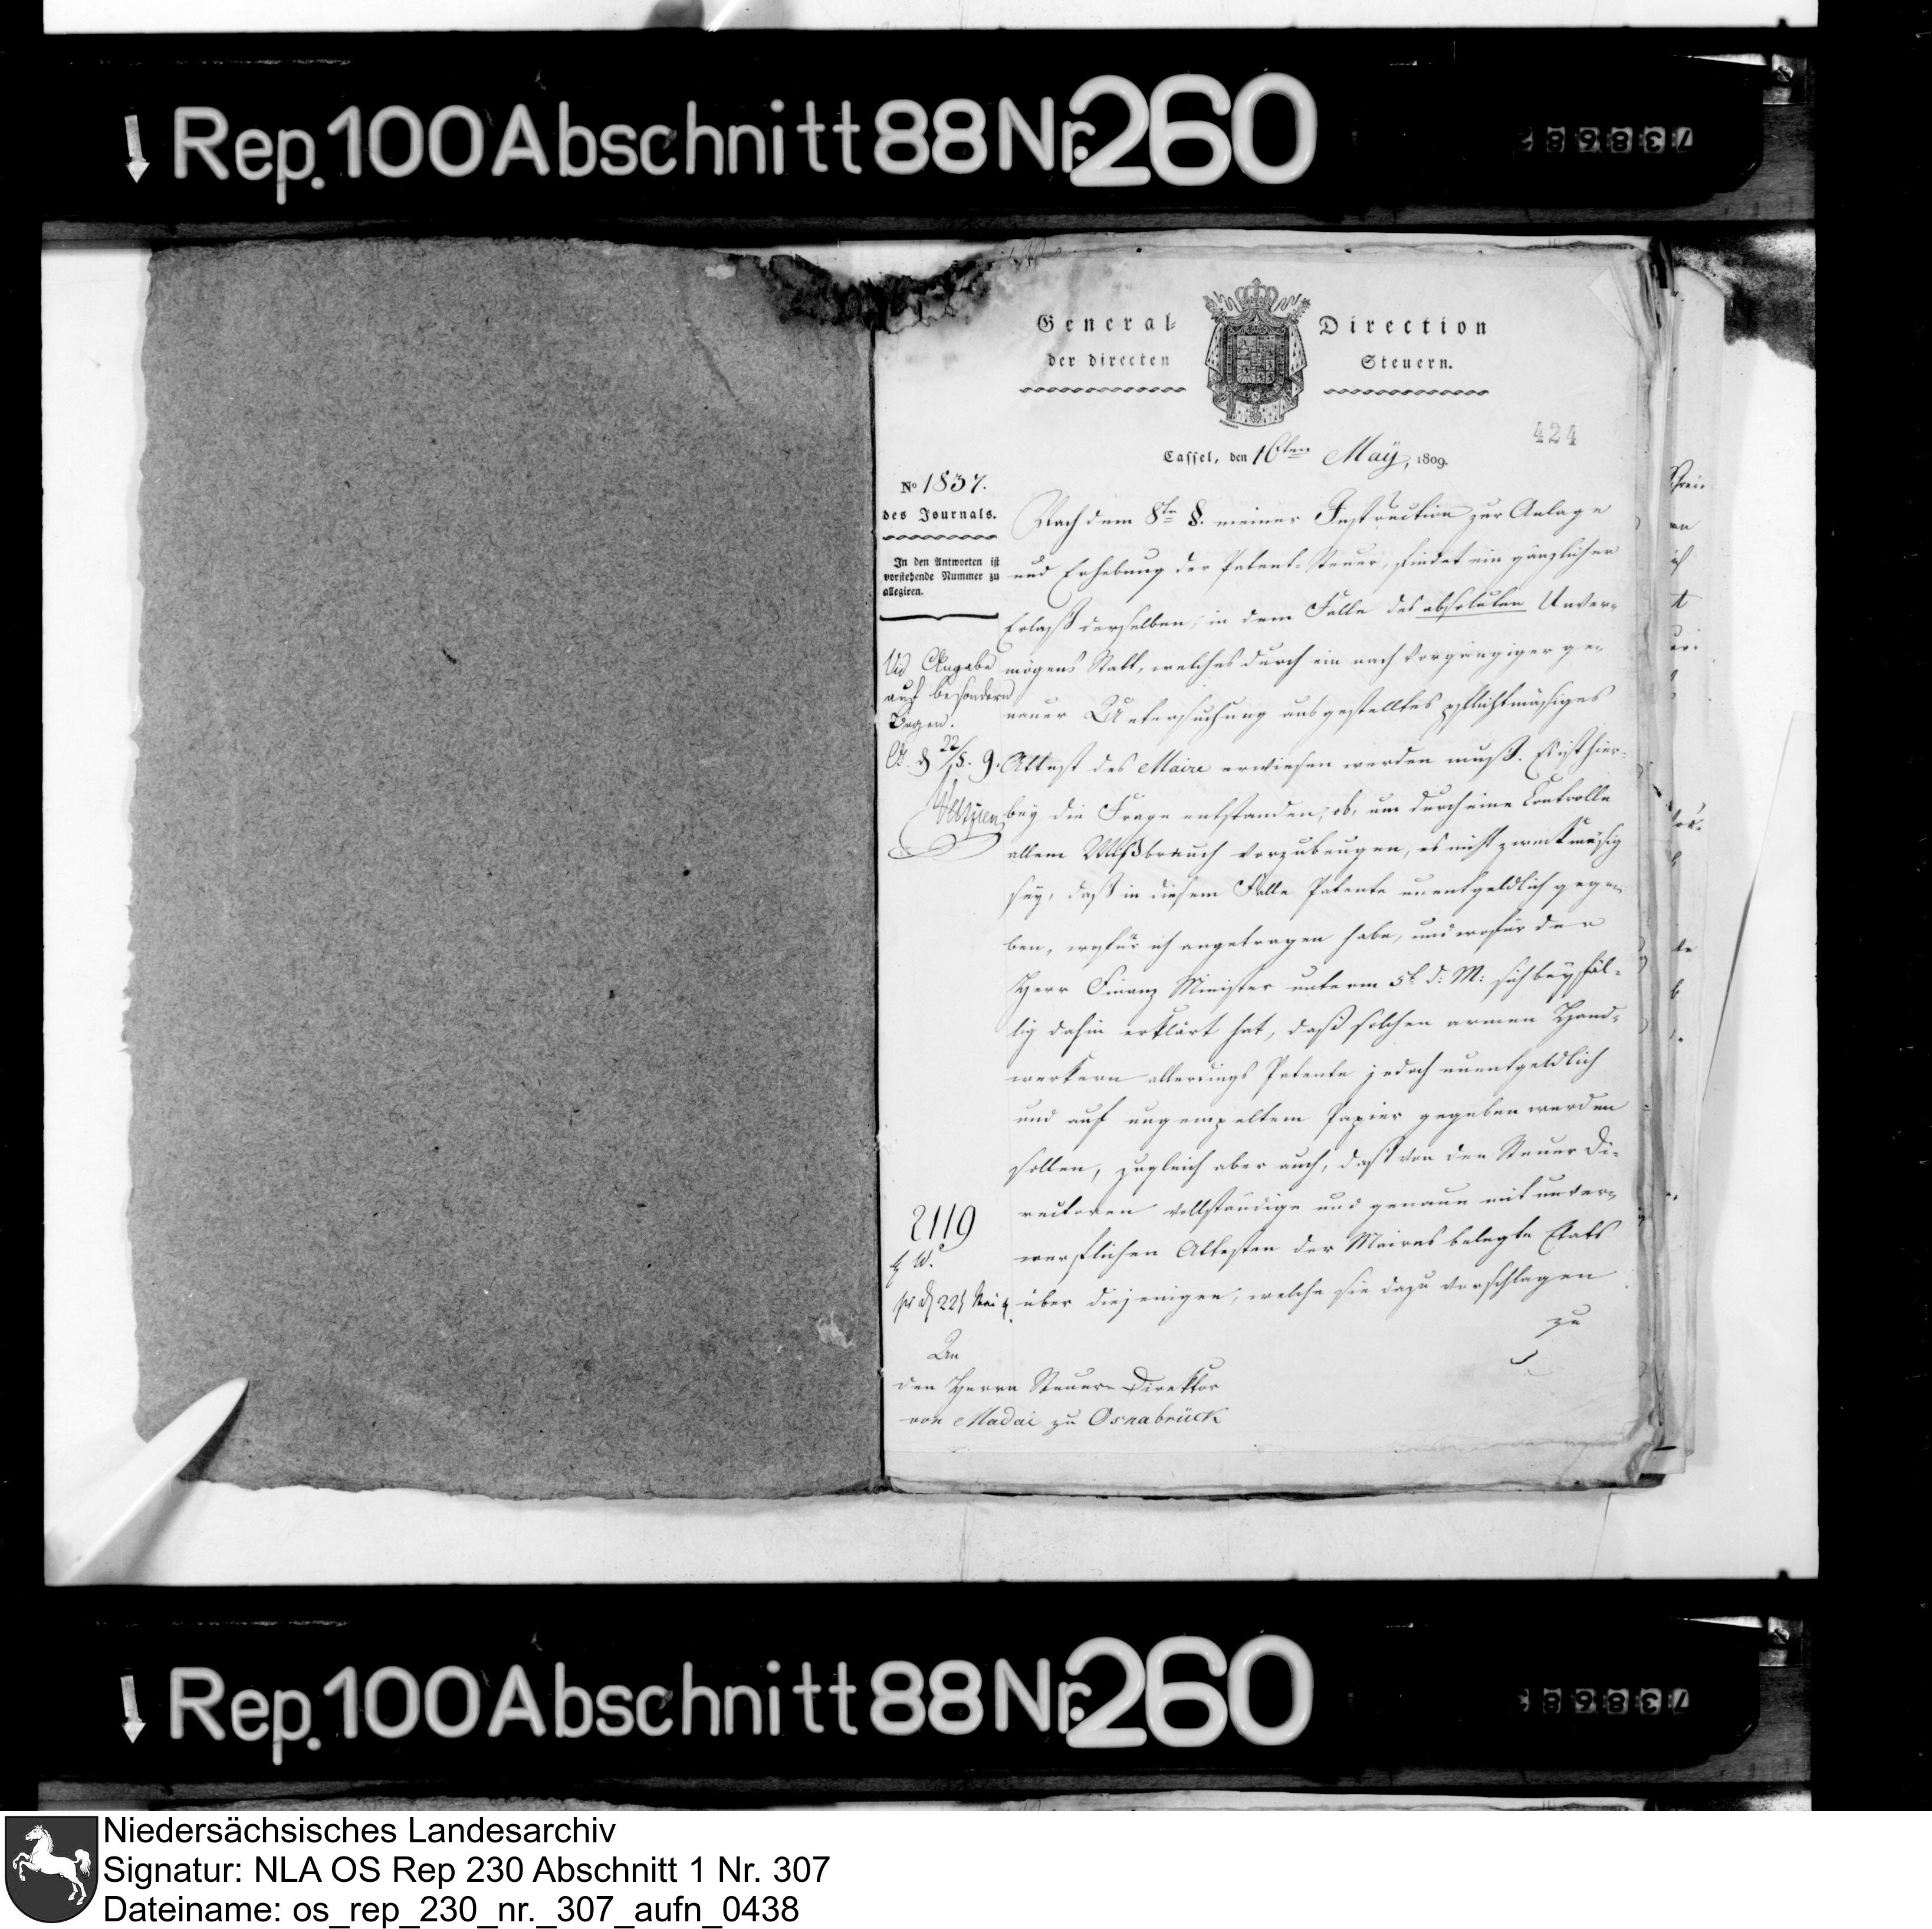 Rep. 100 Abschnitt 88 Nr. 260
General- Direction
der directen Steuern.
424
Cassel, den 16ten Maÿ, 1809.
No 1837.
des Journals.
In den Antworten ist
vorstehende Nummer zu
allegiren.
Nach dem 8ten §. meiner Instruction zur Anlage
und Erhebung der Patent-Steuer, findet ein gänzlicher
Erlaß derselben, in dem Falle des absoluten Unver-
mögens Statt, welches durch ein nach vorgängiger ge-
nauer Untersuchung ausgestelltes pflichtmäsiges
Attest des Maire erwiesen werden muß. Es ist hier-
bey die Frage entstanden, ob, um durch eine Controlle
allem Mißbrauch vorzubeugen, es nicht zweckmäsig
sey, daß in diesem Falle Patente unentgeldlich gege-
ben, wofür ich angetragen habe, und wofür der
Herr Finanz Minister unterm 5t d: M: sich beyfäl-
lig dahin erklärt hat, daß solchen armen Hand-
werkern allerdings Patente jedoch unentgeldlich
und auf ungempeltem Papier gegeben werden
sollen, zugleich aber auch, daß von den Steuer Di-
rectoren vollständige und genaue mit unver-
werflichen Attesten der Maires belegte Etats
über diejenigen, welche sie dazu vorschlagen
zu
Vid Angabe
auf besondern
Bogen.
22/5. 9.
2119
22t Mai
An
den Herrn Steuer-Direktor
von Madai zu Osnabrück
Rep. 100 Abschnitt 88 Nr. 260
Niedersächsisches Landesarchiv
Signatur: NLA OS Rep 230 Abschnitt 1 Nr. 307
Dateiname: os_rep_230_nr._307_aufn_0438